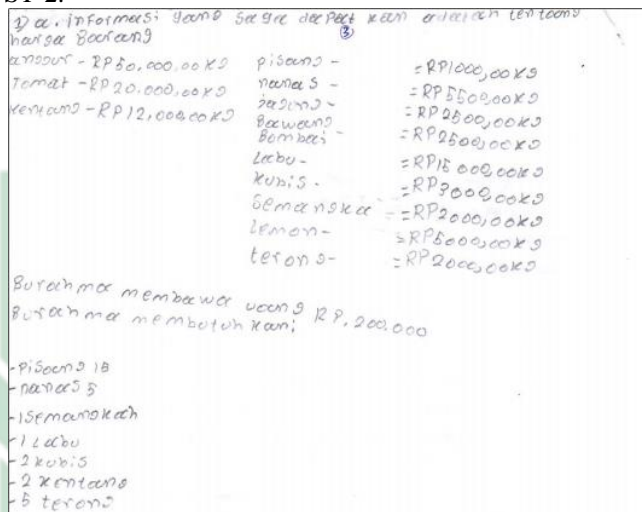 ST-2.
1) a. informasi yang saya dapat kan adalah tentang
harga Barang
③
anggur - RP50.000,00 KG
Tomat - RP20.000,00 KG
Kentang - RP12,000,00 KG
pisang - = RP1000,00 KG
nanas - = RP5500,00 KG
jagung - = RP2500,00 KG
Bawang
Bombai - = RP2500,00 KG
Labu - = RP15 000,00 KG
Kubis - = RP3000,00 KG
Semangka - = RP2000,00 KG
Lemon - = RP5000,00 KG
terong - = RP2000,00 KG
Bu rahma membawa uang RP. 200.000
Bu rahma membutuhkan:
- Pisang 15
- nanas 5
- 1 Semangkah
- 1 Labu
- 2 kubis
- 2 kentang
- 5 terong